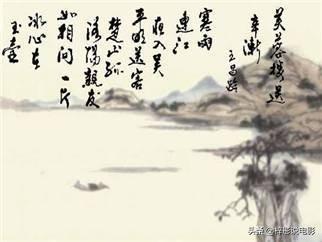 芙蓉樓送
辛漸
王昌齡
寒雨
連江
夜入吴
平明送客
楚山孤
洛陽親友
如相問一片
冰心在
玉壺
头条 @梓彤说电影